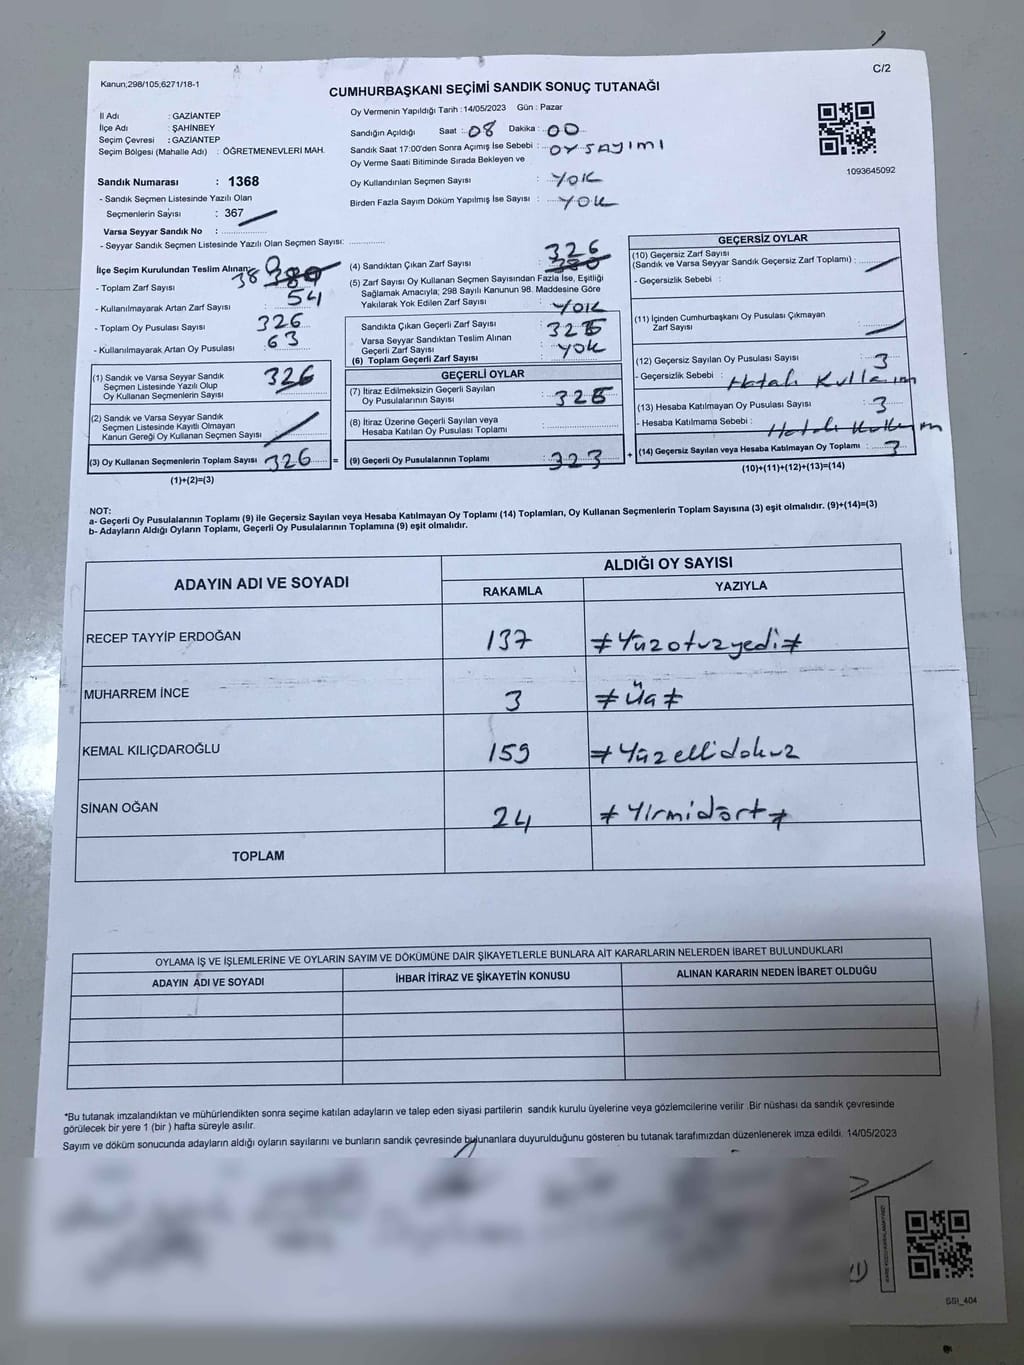 C/2
Kanun;298/105,6271/18-1
CUMHURBAŞKANI SEÇİMİ SANDIK SONUÇ TUTANAĞI
İl Adı : GAZİANTEP
İlçe Adı : ŞAHİNBEY
Seçim Çevresi : GAZİANTEP
Seçim Bölgesi (Mahalle Adı) : ÖĞRETMENEVLERİ MAH.
Oy Vermenin Yapıldığı Tarih : 14/05/2023 Gün : Pazar
Sandığın Açıldığı Saat : 08 Dakika : 00
Sandık Saat 17:00'den Sonra Açımış İse Sebebi : OY SAYIMI
Oy Verme Saati Bitiminde Sırada Bekleyen ve
Oy Kullandırılan Seçmen Sayısı : YOK
Birden Fazla Sayım Döküm Yapılmış İse Sayısı : YOK
1093645092
Sandık Numarası : 1368
- Sandık Seçmen Listesinde Yazılı Olan
Seçmenlerin Sayısı : 367
Varsa Seyyar Sandık No :
- Seyyar Sandık Seçmen Listesinde Yazılı Olan Seçmen Sayısı:
İlçe Seçim Kurulundan Teslim Alınan:
- Toplam Zarf Sayısı 380
- Kullanılmayarak Artan Zarf Sayısı 54
- Toplam Oy Pusulası Sayısı 326
- Kullanılmayarak Artan Oy Pusulası : 63
(1) Sandık ve Varsa Seyyar Sandık
Seçmen Listesinde Yazılı Olup
Oy Kullanan Seçmenlerin Sayısı 326
(2) Sandık ve Varsa Seyyar Sandık
Seçmen Listesinde Kayıtlı Olmayan
Kanun Gereği Oy Kullanan Seçmen Sayısı
(3) Oy Kullanan Seçmenlerin Toplam Sayısı 326 =
(1)+(2)=(3)
(4) Sandıktan Çıkan Zarf Sayısı : 326
(5) Zarf Sayısı Oy Kullanan Seçmen Sayısından Fazla İse, Eşitliği
Sağlamak Amacıyla; 298 Sayılı Kanunun 98. Maddesine Göre
Yakılarak Yok Edilen Zarf Sayısı : YOK
Sandıkta Çıkan Geçerli Zarf Sayısı : 326
Varsa Seyyar Sandıktan Teslim Alınan
Geçerli Zarf Sayısı : YOK
(6) Toplam Geçerli Zarf Sayısı :
GEÇERLİ OYLAR
(7) İtiraz Edilmeksizin Geçerli Sayılan
Oy Pusulalarının Sayısı :
(8) İtiraz Üzerine Geçerli Sayılan veya
Hesaba Katılan Oy Pusulası Toplamı :
(9) Geçerli Oy Pusulalarının Toplamı : 323 +
GEÇERSİZ OYLAR
(10) Geçersiz Zarf Sayısı
(Sandık ve Varsa Seyyar Sandık Geçersiz Zarf Toplamı) :
- Geçersizlik Sebebi :
(11) İçinden Cumhurbaşkanı Oy Pusulası Çıkmayan
Zarf Sayısı :
(12) Geçersiz Sayılan Oy Pusulası Sayısı : 3
- Geçersizlik Sebebi : Hatalı Kullanım
(13) Hesaba Katılmayan Oy Pusulası Sayısı : 3
- Hesaba Katılmama Sebebi : Hatalı Kullanım
(14) Geçersiz Sayılan veya Hesaba Katılmayan Oy Toplamı : 3
(10)+(11)+(12)+(13)=(14)
NOT:
a- Geçerli Oy Pusulalarının Toplamı (9) ile Geçersiz Sayılan veya Hesaba Katılmayan Oy Toplamı (14) Toplamları, Oy Kullanan Seçmenlerin Toplam Sayısına (3) eşit olmalıdır. (9)+(14)=(3)
b- Adayların Aldığı Oyların Toplamı, Geçerli Oy Pusulalarının Toplamına (9) eşit olmalıdır.
ADAYIN ADI VE SOYADI
ALDIĞI OY SAYISI
RAKAMLA YAZIYLA
RECEP TAYYİP ERDOĞAN 137 ≠ Yüzotuzyedi ≠
MUHARREM İNCE 3 ≠ Üç ≠
KEMAL KILIÇDAROĞLU 159 ≠ Yüzellidokuz
SİNAN OĞAN 24 ≠ Yirmidört ≠
TOPLAM
OYLAMA İŞ VE İŞLEMLERİNE VE OYLARIN SAYIM VE DÖKÜMÜNE DAİR ŞİKAYETLERLE BUNLARA AİT KARARLARIN NELERDEN İBARET BULUNDUKLARI
ADAYIN ADI VE SOYADI İHBAR İTİRAZ VE ŞİKAYETİN KONUSU ALINAN KARARIN NEDEN İBARET OLDUĞU
*Bu tutanak imzalandıktan ve mühürlendikten sonra seçime katılan adayların ve talep eden siyasi partilerin sandık kurulu üyelerine veya gözlemcilerine verilir .Bir nüshası da sandık çevresinde
görülecek bir yere 1 (bir ) hafta süreyle asılır.
Sayım ve döküm sonucunda adayların aldığı oyların sayılarını ve bunların sandık çevresinde bulunanlara duyurulduğunu gösteren bu tutanak tarafımızdan düzenlenerek imza edildi. 14/05/2023
SSI_404